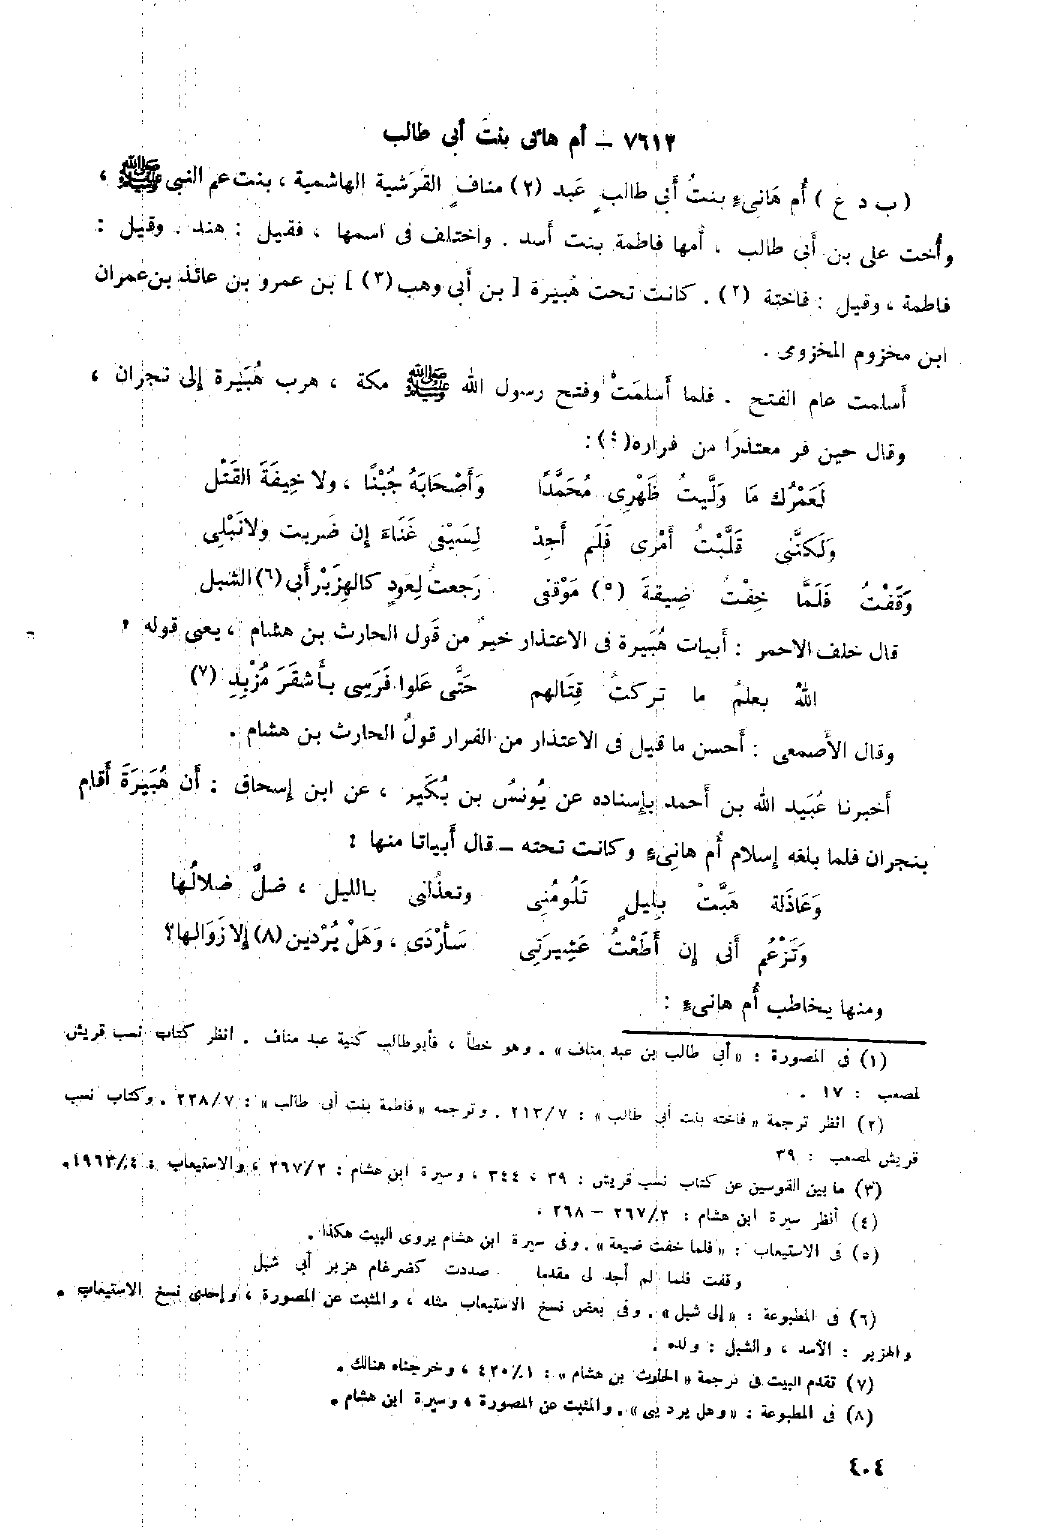 ٧٦١٣ – أم هانئ بنت أبي طالب
( ب د ع ) أُم هَانىءِ بنتُ أَبي طالبٍ عَبد (٢) منافٍ القُرَشية الهاشمية ، بنت عم النبي ﷺ ،
وأُخت علي بن أَبي طالب ، أُمها فاطمة بنت أَسد . واختلف في اسمها ، فقيل : هند . وقيل :
فاطمة ، وقيل : فاختة (٢) . كانت تحت هُبيرة [ بن أَبي وهب (٣) ] بن عمرو بن عائذ بن عمران
ابن مخزوم المخزومي .
أَسلمت عام الفتح . فلما أَسلمَتْ وفتح رسول الله ﷺ مكة ، هرب هُبَيْرة إلى نجران ،
وقال حين فر معتذرًا من فراره(٤) :
لَعَمْرُك مَا وَلَّيتُ ظَهْرِى مُحَمَّدًا وَأَصْحَابَهُ جُبْنًا ، ولا خِيفَةَ القَتْل
وَلَكنَّنى قَلَّبْتُ أَمْرِى فَلَم أَجِدْ لِسَيْفى غَنَاءَ إن ضَربت ولانَبْلِى
وَقَفْتُ فَلَمَّا خِفْتُ ضِيقةَ (٥) مَوْقفى رَجعتُ لِعودٍ كالهِزَبْر أَبى (٦) الشبل
قال خلف الأحمر : أَبيات هُبَيرة فى الاعتذار خيرٌ من قَول الحارث بن هشام ، يعنى قوله ،
اللهُ يعلمُ ما تركتُ قِتَالهم حَتَّى عَلوا فَرَسِى بأَشقَرَ مُزْبِدِ (٧)
وقال الأَصمعى : أَحسن ما قيل فى الاعتذار من الفرار قولُ الحارث بن هشام .
أَخبرنا عُبَيد الله بن أَحمد بإسناده عن يُونسُ بن بُكَير ، عن ابن إسحاق : أَن هُبَيرَةَ أَقام
بنجران فلما بلغه إسلام أُم هانىءِ وكانت تحته – قال أَبياتا منها :
وَعَاذَلة هَبَّتْ بِليلٍ تَلُومُنِى وتعذُلنى بالليل ، ضلَّ ضلالُها
وَتَزْعُم أَنى إن أَطَعْتُ عَشِيرَتِى سَأَرْدَى ، وَهَلْ يُرْدين (٨) إلا زَوَالها؟
ومنها يخاطب أُم هانىءِ :
(١) فى المصورة : « أبى طالب بن عبد مناف » . وهو خطأ ، فأبوطالب كنية عبد مناف . انظر كتاب نسب قريش
لمصعب : ١٧ .
(٢) انظر ترجمة « فاخته بنت أبى طالب » : ٢١٣/٧ . وترجمه « فاطمة بنت أبى طالب » : ٢٢٨/٧ . وكتاب نسب
قريش لمصعب : ٣٩
(٣) ما بين القوسين عن كتاب نسب قريش : ٣٩ ، ٣٤٤ ، وسيرة ابن هشام : ٢٦٧/٢ ، والاستيعاب : ١٩٦٣/٤ .
(٤) أنظر سيرة ابن هشام : ٢٦٧/٣ – ٢٦٨ .
(٥) فى الاستيعاب : « فلما خفت ضيعة » . وفى سيرة ابن هشام يروى البيت هكذا .
وقفت فلما لم أجد لى مقدما صددت كضرغام هزبر أبى شبل
(٦) فى المطبوعة : « إلى شبل » . وفى بعض نسخ الاستيعاب مثله ، والمثبت عن المصورة ، وإحدى نسخ الاستيعاب .
والهزبر : الأسد ، والشبل : ولده .
(٧) تقدم البيت فى ترجمة « الحارث بن هشام » : ٤٢٠/١ ، وخرجناه هنالك .
(٨) فى المطبوعة : « وهل يرديى » . والمثبت عن المصورة ، وسيرة ابن هشام .
٤٠٤